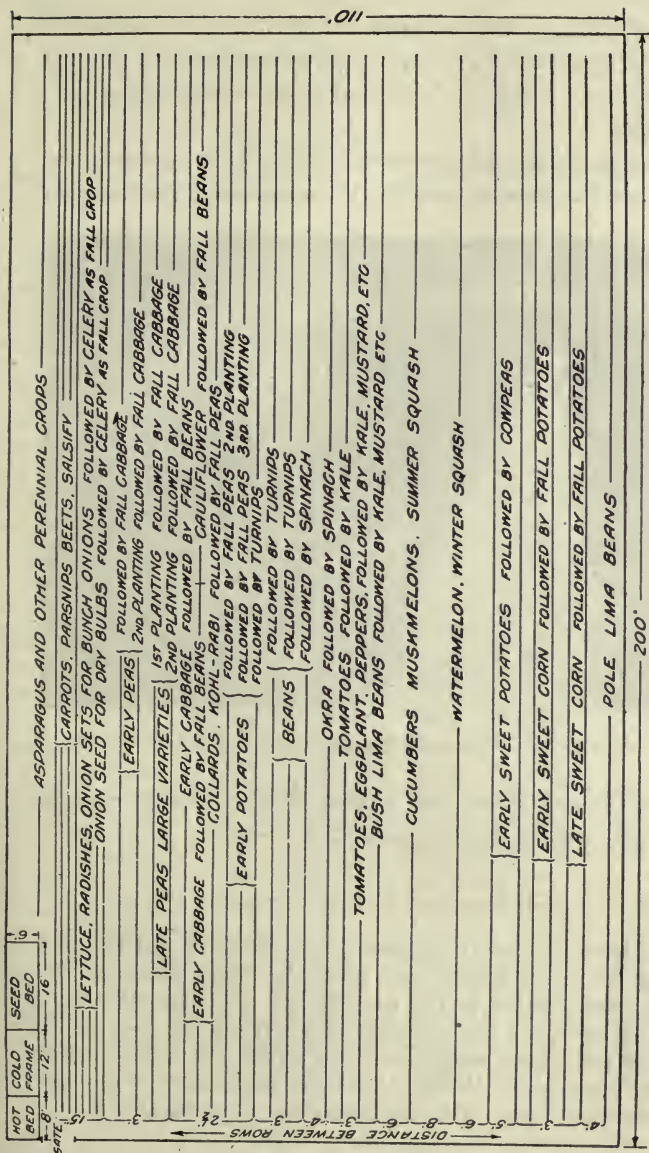 110'
HOT BED
COLD FRAME
SEED BED
8
12
16
6'
GATE
ASPARAGUS AND OTHER PERENNIAL CROPS
CARROTS, PARSNIPS BEETS, SALSIFY
LETTUCE, RADISHES, ONION SETS FOR BUNCH ONIONS FOLLOWED BY CELERY AS FALL CROP
ONION SEED FOR DRY BULBS FOLLOWED BY CELERY AS FALL CROP
EARLY PEAS
FOLLOWED BY FALL CABBAGE
2ND PLANTING FOLLOWED BY FALL CABBAGE
LATE PEAS LARGE VARIETIES
1ST PLANTING FOLLOWED BY FALL CABBAGE
2ND PLANTING FOLLOWED BY FALL CABBAGE
EARLY CABBAGE FOLLOWED BY FALL BEANS
EARLY CABBAGE FOLLOWED BY FALL BEANS CAULIFLOWER FOLLOWED BY FALL BEANS
COLLARDS, KOHL-RABI FOLLOWED BY FALL PEAS
EARLY POTATOES
FOLLOWED BY FALL PEAS 2ND PLANTING
FOLLOWED BY FALL PEAS 3RD PLANTING
FOLLOWED BY TURNIPS
BEANS
FOLLOWED BY TURNIPS
FOLLOWED BY TURNIPS
FOLLOWED BY SPINACH
OKRA FOLLOWED BY SPINACH
TOMATOES FOLLOWED BY KALE
TOMATOES, EGGPLANT, PEPPERS, FOLLOWED BY KALE, MUSTARD, ETC
BUSH LIMA BEANS FOLLOWED BY KALE, MUSTARD ETC
CUCUMBERS MUSKMELONS, SUMMER SQUASH
WATERMELON, WINTER SQUASH
EARLY SWEET POTATOES FOLLOWED BY COWPEAS
EARLY SWEET CORN FOLLOWED BY FALL POTATOES
LATE SWEET CORN FOLLOWED BY FALL POTATOES
POLE LIMA BEANS
15"
3'
2½'
3'
4'
3'
6'
8'
6'
5'
3'
4'
DISTANCE BETWEEN ROWS
200'